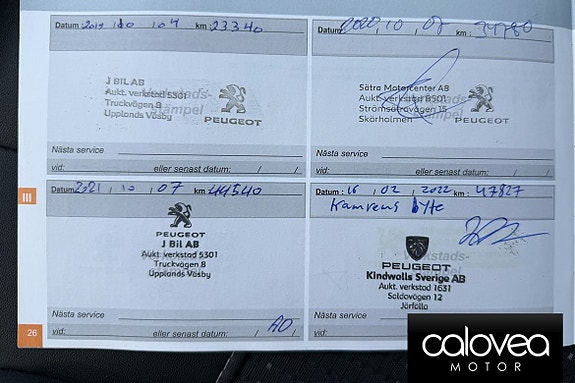 Datum: 2019 10 04 km: 23340
J BIL AB
Aukt. verkstad 5301
Truckvägen 8
Upplands Väsby
PEUGEOT
Nästa service
vid: eller senast datum: / /
Datum: 2020, 10, 07 km: 34780
Sätra Motorcenter AB
Aukt. verkstad 8501
Strömsätravägen 15
Skärholmen
PEUGEOT
Nästa service
vid: eller senast datum: / /
III
Datum: 2021, 10, 07 km: 44540
PEUGEOT
J Bil AB
Aukt. verkstad 5301
Truckvägen 8
Upplands Väsby
Nästa service
vid: eller senast datum: / /
AO
Datum: 16, 02, 2022 km: 47827
Kamrems byte
PEUGEOT
Kindwalls Sverige AB
Aukt. verkstad 1631
Saldovägen 12
Järfälla
Nästa service
vid:
26
calovea
MOTOR